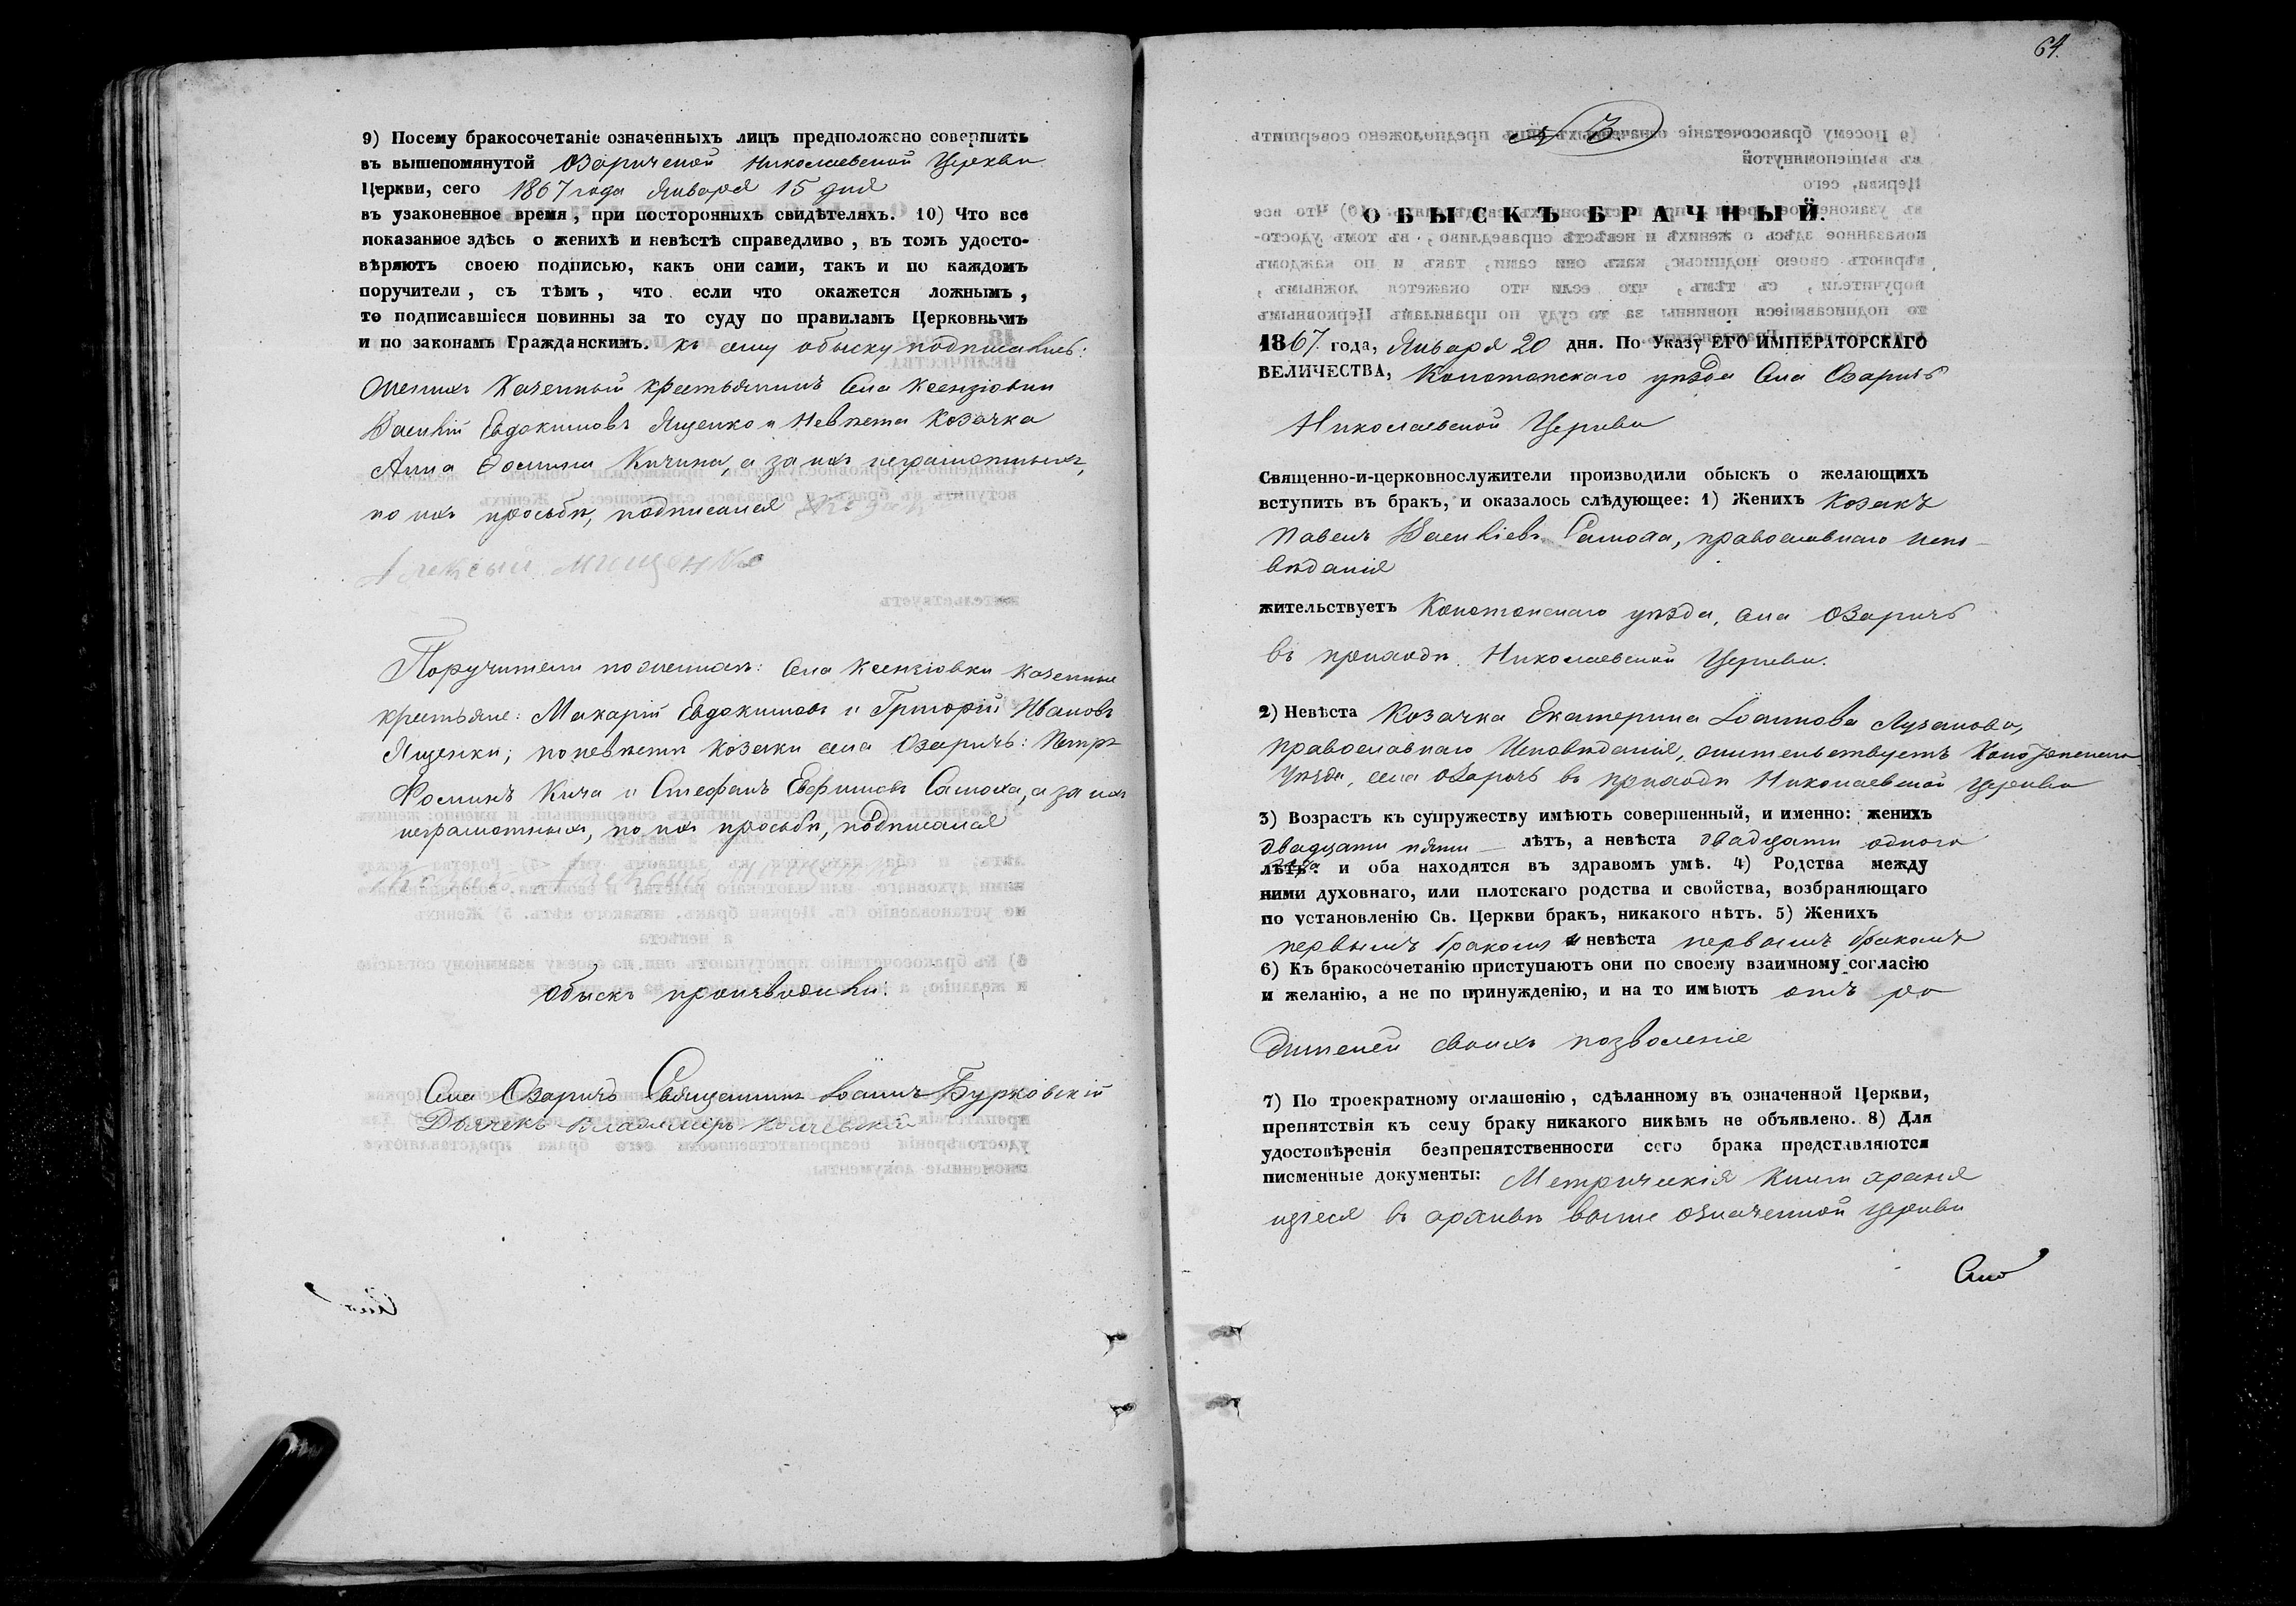 9) Посему бракосочетаніе означенныхъ лицъ предположено совершить
въ вышепомянутой Озаричской Николаевской Церкви
Церкви, сего 1867 года Января 15 дня
въ узаконенное время, при посторонныхъ свидѣтеляхъ. 10) Что все
показанное здѣсь о женихѣ и невѣстѣ справедливо, въ томъ удосто-
вѣряютъ своею подписью, какъ они сами, такъ и по каждомъ
поручители, съ тѣмъ, что если что окажется ложнымъ,
то подписавшіеся повинны за то суду по правиламъ Церковнымъ
и по законамъ Гражданскимъ. Къ сему обыску подписались:
Женихъ Казенный крестьянинъ Села Ксензовки
Василій Евдокимовъ Ященко и Невѣста Козачка
Анна Фомина Кичина, а за ихъ неграмотныхъ,
по ихъ просьбѣ, подписался
Алексый Мищенко
Поручители по женихѣ: Села Ксензовки казенные
крестьяне: Макарій Евдокимовъ и Григорій Ивановъ
Ященки; по невѣстѣ козаки села Озаричъ: Петръ
Фоминъ Кича и Стефанъ Евфимовъ Самоха, а за ихъ
неграмотныхъ, по ихъ просьбѣ, подписался
Алексый Мищенко
Обыскъ производили:
Села Озаричъ Священникъ Іоаннъ Бурковскій
Дьячекъ Владимиръ
64.
№ 3.
ОБЫСКЪ БРАЧНЫЙ.
1867 года, Января 20 дня. По Указу ЕГО ИМПЕРАТОРСКАГО
ВЕЛИЧЕСТВА, Конотопскаго уѣзда Села Озаричъ
Николаевской Церкви
Священно-и-церковнослужители производили обыскъ о желающихъ
вступить въ бракъ, и оказалось слѣдующее: 1) Женихъ Козакъ
Павелъ Василіевъ Самоха, православнаго испо-
вѣданія
жительствуетъ Конотопскаго уѣзда, села Озаричъ
въ приходѣ Николаевской Церкви.
2) Невѣста Козачка Екатерина Іоаннова Лузанова,
православнаго Исповѣданія, жительствуетъ Конотопскаго
Уѣзда, села Озаричъ въ приходѣ Николаевской Церкви
3) Возрастъ къ супружеству имѣютъ совершенный, и именно: женихъ
двадцати пяти — лѣтъ, а невѣста двадцати одного
лѣтъ: и оба находятся въ здравомъ умѣ. 4) Родства между
ними духовнаго, или плотскаго родства и свойства, возбраняющаго
по установленію Св. Церкви бракъ, никакого нѣтъ. 5) Женихъ
первымъ бракомъ а невѣста первымъ бракомъ
6) Къ бракосочетанію приступаютъ они по своему взаимному согласію
и желанію, а не по принужденію, и на то имѣютъ отъ ро
дителей своихъ позволеніе
7) По троекратному оглашенію, сдѣланному въ означенной Церкви,
препятствія къ сему браку никакого никѣмъ не объявлено. 8) Для
удостовѣренія безпрепятственности сего брака представляются
писменные документы: Метрическія Книги храня
щіеся въ архивѣ выше означенной Церкви